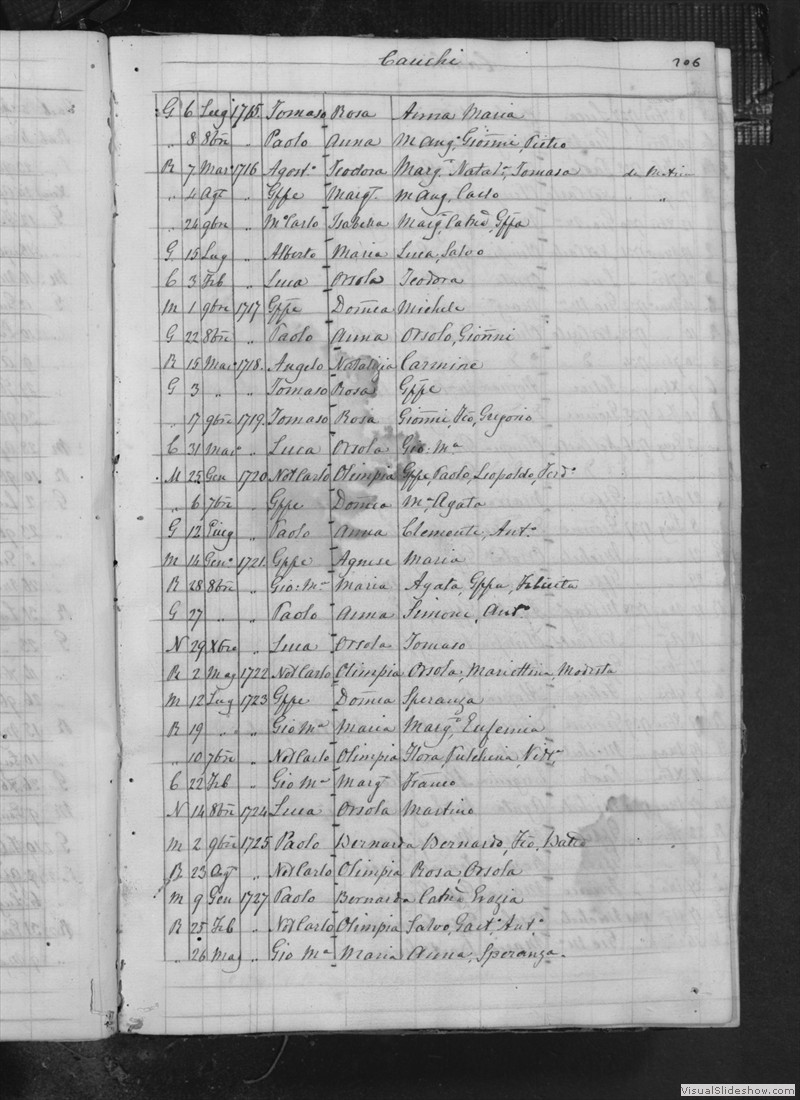 Cauchi
206
G 6 Lug 1715. Tomaso Rosa Anna Maria
„ 8 8bre „ Paolo Anna M Ang. Gionni, Pietro
R 7 Mar 1716 Agost.o Teodora Marg.a Natal.e, Tomasa
„ 4 Agt „ Gppe Margt. M Ang, Carlo „
„ 24 9bre „ M.o Carlo Isabella Marg. Catna, Gppa
G 15 Lug „ Alberto Maria Luca, Salvo
C 3 Feb „ Luca Orsola Teodora
M 1 9bre 1717 Gppe Domca Michele
G 22 8bre „ Paolo Anna Orsola, Gionni
R 15 Mar 1718. Angelo Natalizia Carmine
G 3 „ „ Tomaso Rosa Gppe
„ 17 9bre 1719. Tomaso Rosa Gionni, Fco, Gregorio
C 31 Mar „ Luca Orsola Gio: M.a
M 25 Gen 1720 Not Carlo Olimpia Gppe, Paolo, Leopoldo, Ferd.o
„ 6 7bre „ Gppe Domca M.a Agata
G 12 „ Paolo Anna Clemente, Ant.o
M 14 Gen.o 1721. Gppe Agnese Maria
R 28 8bre „ Gio: M.a Maria Agata, Gppa, Felicita
G 27 „ „ Paolo Anna Simone, Ant.o
N 29 Xbre „ Luca Orsola Tomaso
R 2 Mag 1722 Not Carlo Olimpia Orsola, Mariettina, Modesta
M 12 Lug 1723 Gppe Domca Speranza
R 19 „ „ Gio M.a Maria Marg.a Eufemia
„ 10 7bre „ Not Carlo Olimpia Flora, Pulchina,
C 22 Feb „ Gio M.a Margt Franco
N 14 8bre 1724 Luca Orsola Martino
M 2 9bre 1725 Paolo Bernarda Bernardo, Fco,
R 23 Agt „ Not Carlo Olimpia Rosa, Orsola
M 9 Gen 1727 Paolo Bernarda Catna Grazia
R 25 Feb „ Not Carlo Olimpia Salvo, Gaet.o Ant.o
„ 26 Mag „ Gio M.a Maria Anna, Speranza.
VisualSlideshow.com